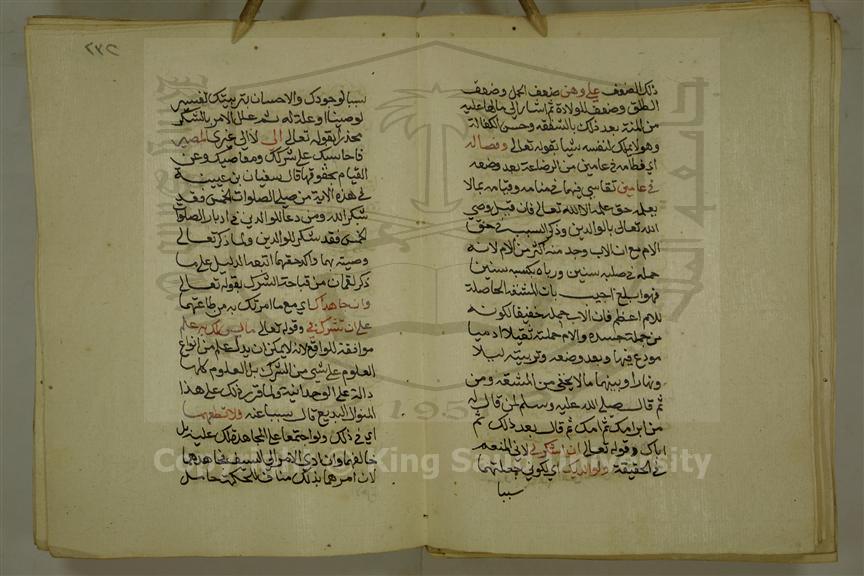 ذلك الضعف على وهن ضعف الحمل وضعف
الطلق وضعف للولادة ثم اشار الى مالها عليه
من المنة بعد ذلك بالشفقه وحسن الكفالة
وهو لا يملك لنفسه شيا بقوله تعالى وفصاله
اي فطامه في عامين من الرضاعة بعد وضعه
في عامين تقاسي فيهما في منامه وقيامه مالا
يعلمه حق علمه الا الله تعالى فان قيل وصي
الله تعالى بالوالدين وذكر السبب في حق
الام مع ان الاب وجد منه اكثر من الام لانه
حمله في صلبه سنين ورباه بكسبه سنين
فهو ابلغ اجيب بان المشقة الحاصلة
للام اعظم فان الاب حمله خفيفا لكونه
من جملة جسده والام حملته ثقيلا ادميا
مودع فيها وبعد وضعه وتربيته ليلا
ونهارا وبينهما مالا يخفي من المشقه ومن
ثم قال صلى الله عليه وسلم لمن قال له
من ابر امك ثم امك ثم قال بعد ذلك ثم
اباك وقوله تعالى ان اشكر لي لاني المنعم
في الحقيقة ولوالديك اي لكوني جعلتهما
سببا
٢٣٥
سببا لوجودك والاحسان بتربيتك
لوصينا او علة له ثم علل الامر بالشكر
محذرا بقوله تعالى الى لا الى غيري المصير
فاحاسبك على شركك ومعاصيك وعن
القيام بحقوقهما قال سفيان بن عيينة
في هذه الاية من صلى الصلوات الخمس فقد
شكر الله ومن دعا للوالدين في ادبار الصلوات
الخمس فقد شكر للوالدين ولما ذكر تعالى
وصيته بهما واكد حقهما اتبعه الدليل عليها
ذكر لقمان من قباحة الشرك بقوله تعالى
وان جاهداك اي مع ما امرتك به من طاعتهما
على ان تشرك بي وقوله تعالى ما ليس لك به علم
موافقة للواقع لانه لا يمكن ان يدل علم من انواع
العلوم على شي من الشرك بل العلوم كلها
دالة على الوحدانية ولما قرر ذلك على هذا
المنوال البديع قال سببا عنه فلا تطعهما
اي في ذلك ولو اجتمعا على المجاهدة لك عليه بل
خالفهما وان ادي الامر الى السيف فجاهدهما
لان امرهما بذلك مناف للحكمة حامل
Copyright © King Saud University
جامعة الملك سعود
195